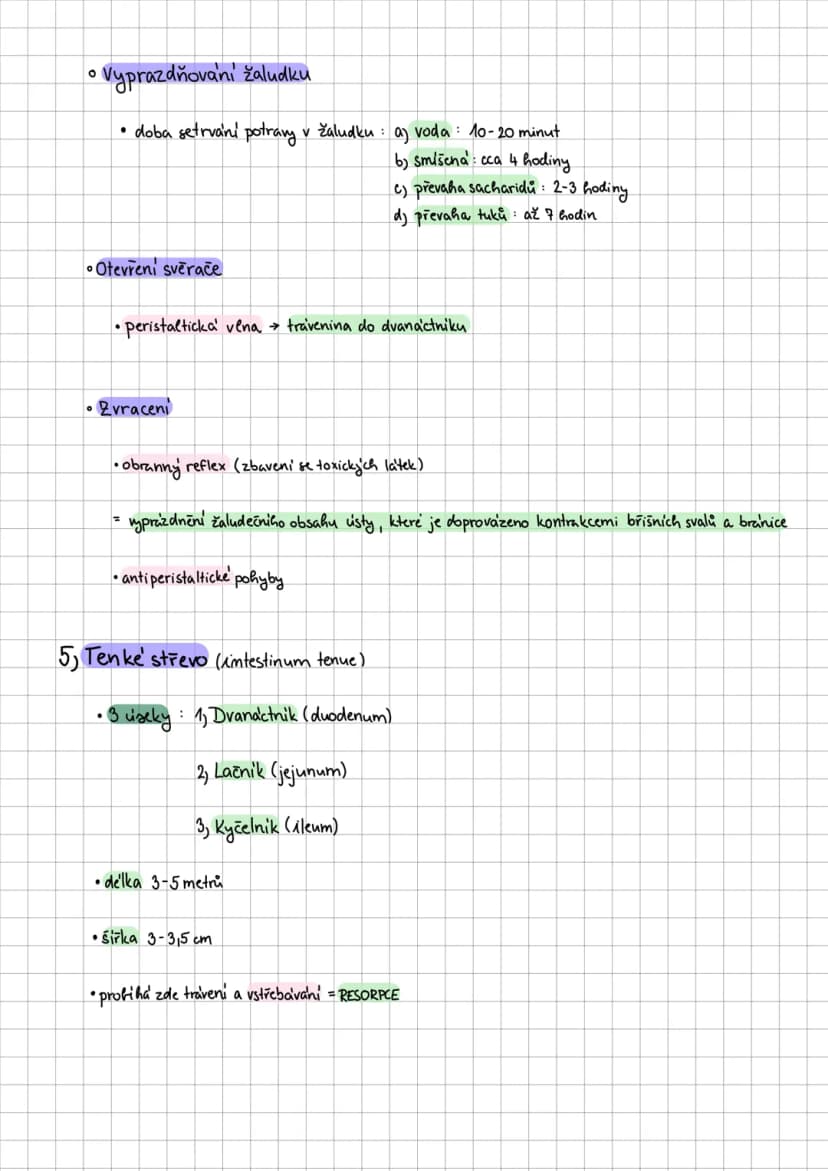 ° Vyprazdňování žaludku
• doba setrvání potravy v žaludku : a) voda : 10-20 minut
b) smíšená : cca 4 hodiny
c) převaha sacharidů : 2-3 hodiny
d) převaha tuků : až 7 hodin
° Otevření svěrače
• peristaltická vlna → trávenina do dvanáctníku
° Zvracení
• obranný reflex (zbavení se toxických látek)
= vyprázdnění žaludečního obsahu ústy, které je doprovázeno kontrakcemi břišních svalů a bránice
• antiperistaltické pohyby
5) Tenké střevo (intestinum tenue)
• 3 úseky : 1) Dvanáctník (duodenum)
2) Lačník (jejunum)
3) Kyčelník (ileum)
• délka 3-5 metrů
• šířka 3-3,5 cm
• probíhá zde trávení a vstřebávání = RESORPCE